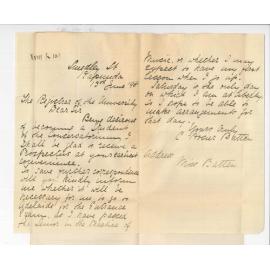 Smedley St
Kapunda
13th June '98
The Registrar of the University
Dear Sir
Being desirous
of becoming a Student
of the Conservatorium I
shall be glad to receive a
Prospectus at your earliest
convenience.
To save further correspondence
will you kindly inform
me whether it will be
necessary for me to go to
Adelaide for the Entrance
Exam, as I have passed
the Junior in the Theory of
Music, or whether I may
expect to have my first
lesson when I go up?
Saturday is the only day
on which I am at liberty
so I hope to be able to
make arrangements for
that day.
Yours truly
C Butten
Address
Miss Butten